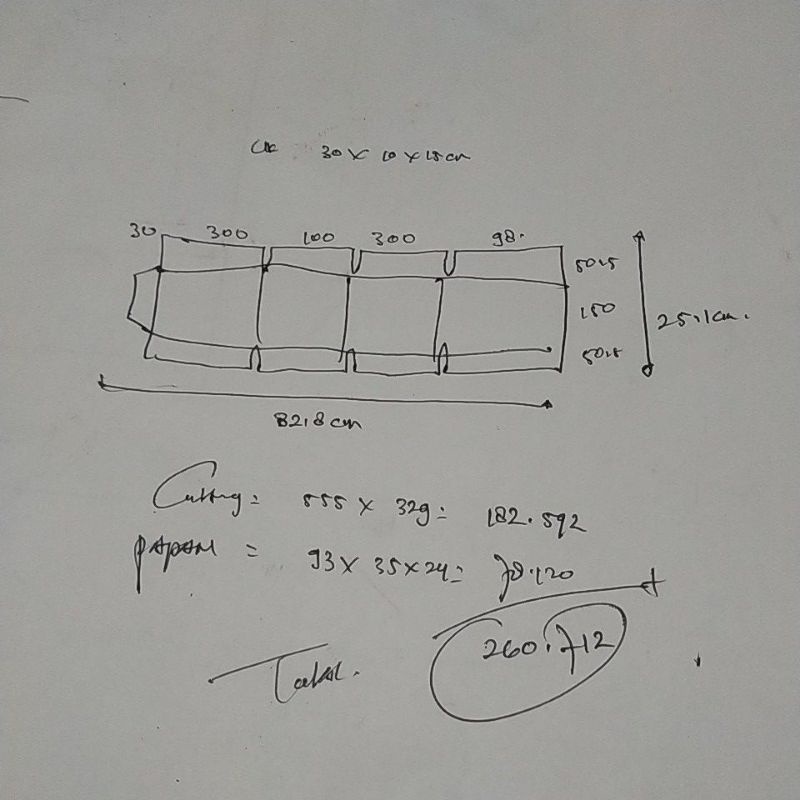 UK 30 x 10 x 15 cm
30 300 100 300 98.
50.5
150
25.1cm.
50.5
82.8 cm
Cutting = 555 x 329 = 182.592
PAPAN = 93 x 35 x 24 = 78.120
+
Total. 260.712